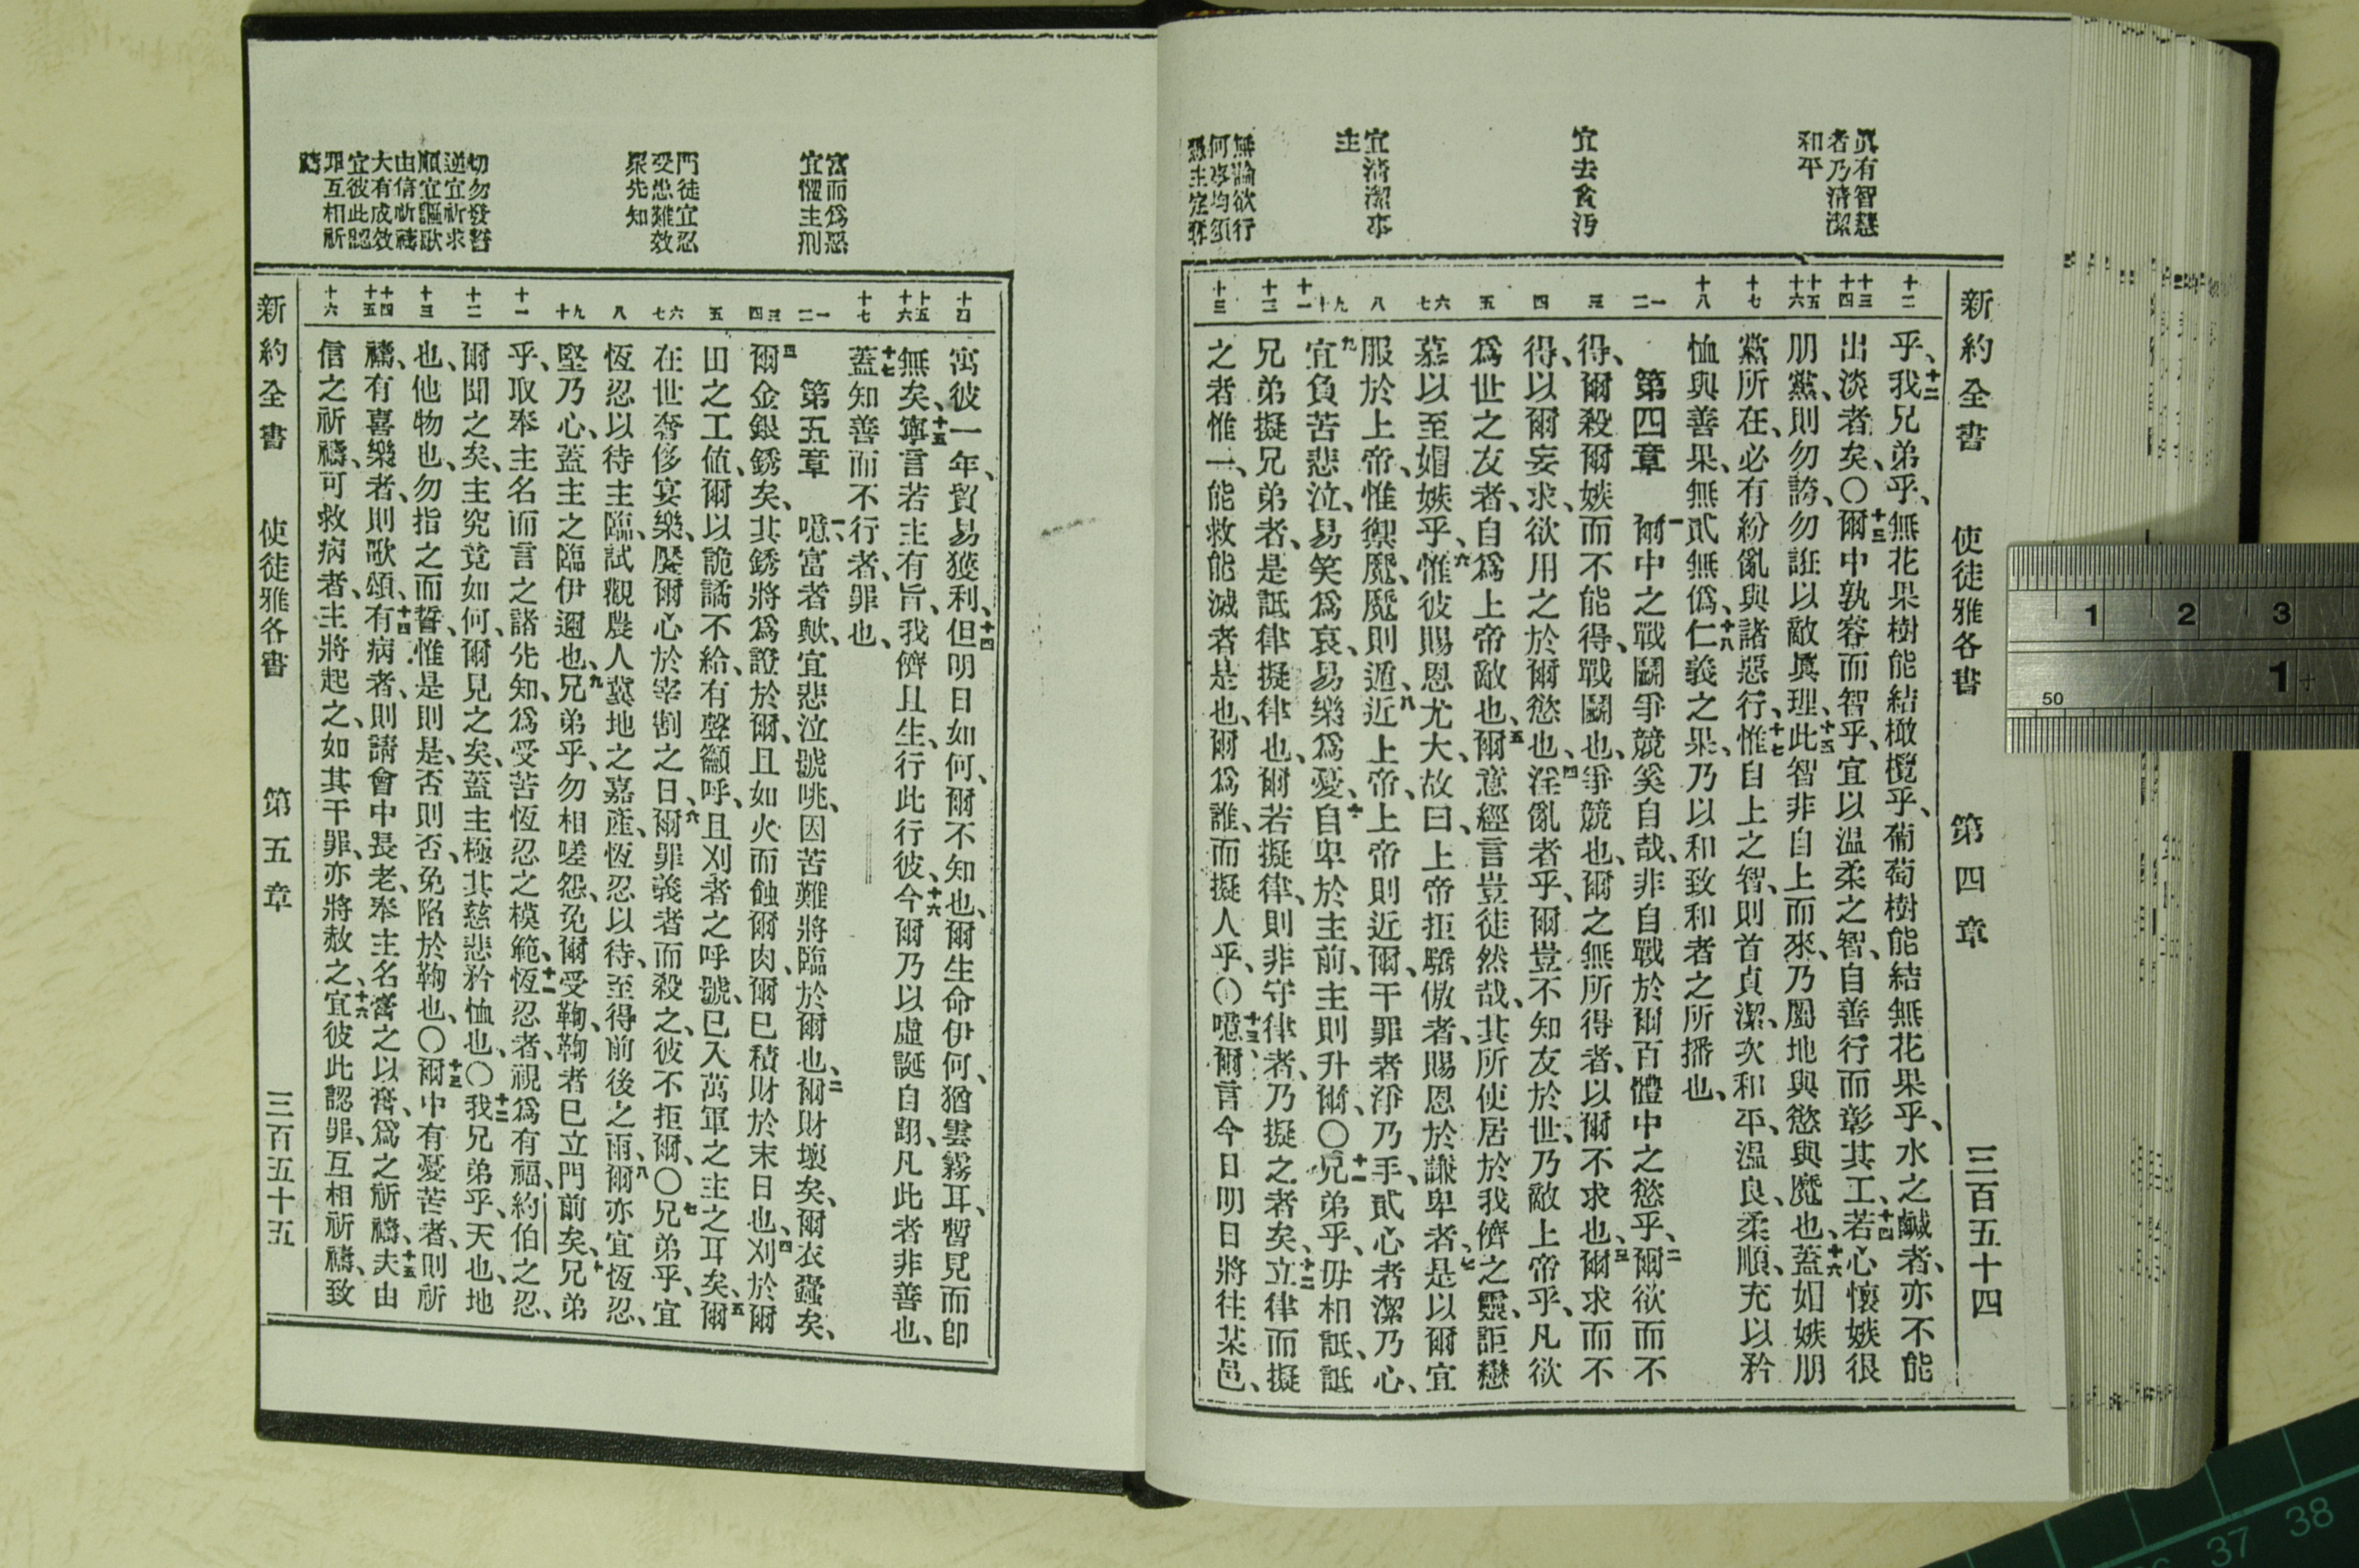 新約全書 使徒雅各書 第四章 三百五十四
眞有智慧
者乃清潔
和平
宜去貪污
宜清潔事
主
無論欲行
何事均須
憑主定奪
十二
十三
十四
十五
十六
十七
十八
一
二
三
四
五
六
七
八
九
十
十一
十二
十三
乎、十二我兄弟乎、無花果樹能結橄欖乎、葡萄樹能結無花果乎、水之鹹者、亦不能
出淡者矣、〇十三爾中孰容而智乎、宜以温柔之智、自善行而彰其工、十四若心懷嫉很
朋黨、則勿誇、勿誑以敵眞理、十五此智非自上而來、乃屬地與慾與魔也、十六蓋媢嫉朋
黨所在、必有紛亂與諸惡行、十七惟自上之智、則首貞潔、次和平、温良、柔順、充以矜
恤與善果、無貳無僞、十八仁義之果、乃以和致和者之所播也、
第四章 一爾中之戰鬭爭競奚自哉、非自戰於爾百體中之慾乎、二爾欲而不
得、爾殺爾嫉而不能得、戰鬭也、爭競也、爾之無所得者、以爾不求也、三爾求而不
得、以爾妄求、欲用之於爾慾也、四淫亂者乎、爾豈不知友於世、乃敵上帝乎、凡欲
爲世之友者、自爲上帝敵也、五爾意經言豈徒然哉、其所使居於我儕之靈、詎戀
慕以至媢嫉乎、六惟彼賜恩尤大、故曰、上帝拒驕傲者、賜恩於謙卑者、七是以爾宜
服於上帝、惟禦魔、魔則遁、八近上帝、上帝則近爾、干罪者淨乃手、貳心者潔乃心、
九宜負苦悲泣、易笑爲哀、易樂爲憂、十自卑於主前、主則升爾、〇十一兄弟乎、毋相詆、詆
兄弟擬兄弟者、是詆律擬律也、爾若擬律、則非守律者、乃擬之者矣、十二立律而擬
之者惟一、能救能滅者是也、爾爲誰、而擬人乎、〇十三噫、爾言今日明日將往某邑、
富而爲惡
宜懼主刑
門徒宜忍
受患難效
衆先知
切勿發誓
逆宜祈求
順宜謳歌
由信祈禱
大有成效
宜彼此認
罪互相祈
禱
十四
十五
十六
十七
一
二
三
四
五
六
七
八
九
十
十一
十二
十三
十四
十五
十六
寓彼一年、貿易獲利、十四但明日如何、爾不知也、爾生命伊何、猶雲霧耳、暫見而卽
無矣、十五寧言若主有旨、我儕且生、行此行彼、十六今爾乃以虛誕自詡、凡此者非善也、
十七蓋知善而不行者、罪也、
第五章 一噫、富者歟、宜悲泣號咷、因苦難將臨於爾也、二爾財壞矣、爾衣蠹矣、
三爾金銀銹矣、其銹將爲證於爾、且如火而蝕爾肉、爾已積財於末日也、四刈於爾
田之工値、爾以詭譎不給、有聲籲呼、且刈者之呼號、已入萬軍之主之耳矣、五爾
在世奢侈宴樂、饜爾心於宰割之日、六爾罪義者而殺之、彼不拒爾、〇七兄弟乎、宜
恆忍以待主臨、試觀農人冀地之嘉產、恆忍以待、至得前後之雨、八爾亦宜恆忍、
堅乃心、蓋主之臨伊邇也、九兄弟乎、勿相嗟怨、免爾受鞫、鞫者已立門前矣、十兄弟
乎、取奉主名而言之諸先知、爲受苦恆忍之模範、十一恆忍者、視爲有福、約伯之忍、
爾聞之矣、主究竟如何、爾見之矣、蓋主極其慈悲矜恤也、〇十二我兄弟乎、天也、地
也、他物也、勿指之而誓、惟是則是、否則否、免陷於鞫也、〇十三爾中有憂苦者、則祈
禱、有喜樂者、則歌頌、十四有病者、則請會中長老、奉主名膏之以膏、爲之祈禱、十五夫由
信之祈禱、可救病者、主將起之、如其干罪、亦將赦之、十六宜彼此認罪、互相祈禱、致
新約全書 使徒雅各書 第五章 三百五十五
1 2 3
50
1
37 38